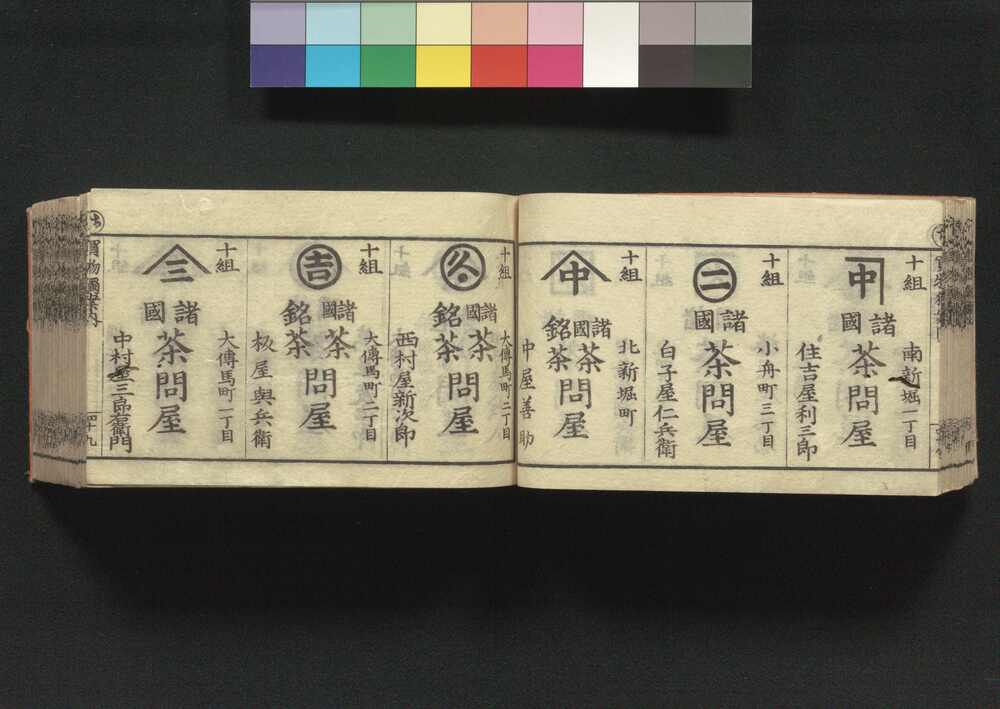 十組
中
諸國
茶問屋
南新堀一丁目
住吉屋利三郎
十組
二
諸國
茶問屋
小舟町三丁目
白子屋仁兵衛
十組
中
諸國
銘茶
茶問屋
北新堀町
中屋善助
十組
諸國
銘茶
茶問屋
大傳馬町二丁目
西村屋新次郎
十組
吉
諸國
銘茶
茶問屋
大傳馬町二丁目
板屋與兵衛
十組
三
諸國
茶問屋
大傳馬町一丁目
中村屋三郎右衛門
買物獨案内
四十九